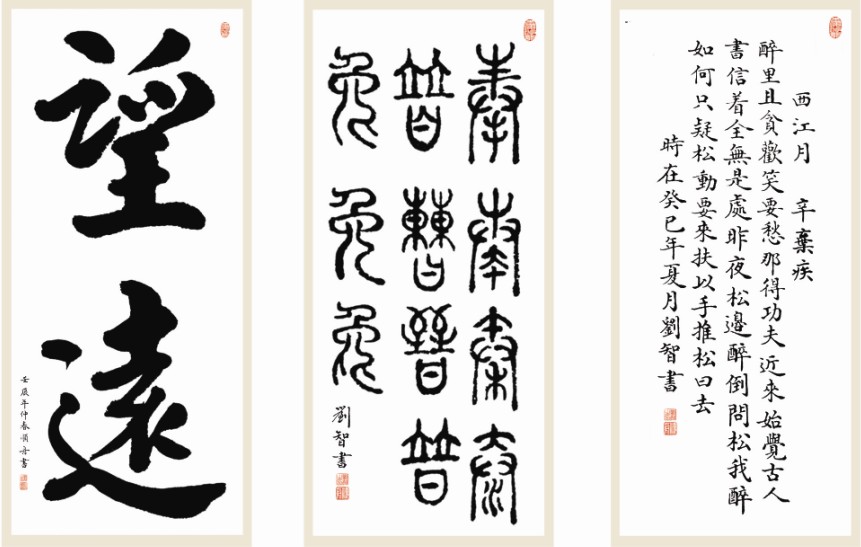 望遠
壬辰年仲春
丹書
奉奏秦泰
普曹晉
劉智書
西江月 辛棄疾
醉里且貪歡笑要愁那得功夫近來始覺古人
書信着全無是處昨夜松邊醉倒問松我醉
如何只疑松動要來扶以手推松曰去
時在癸巳年夏月劉智書